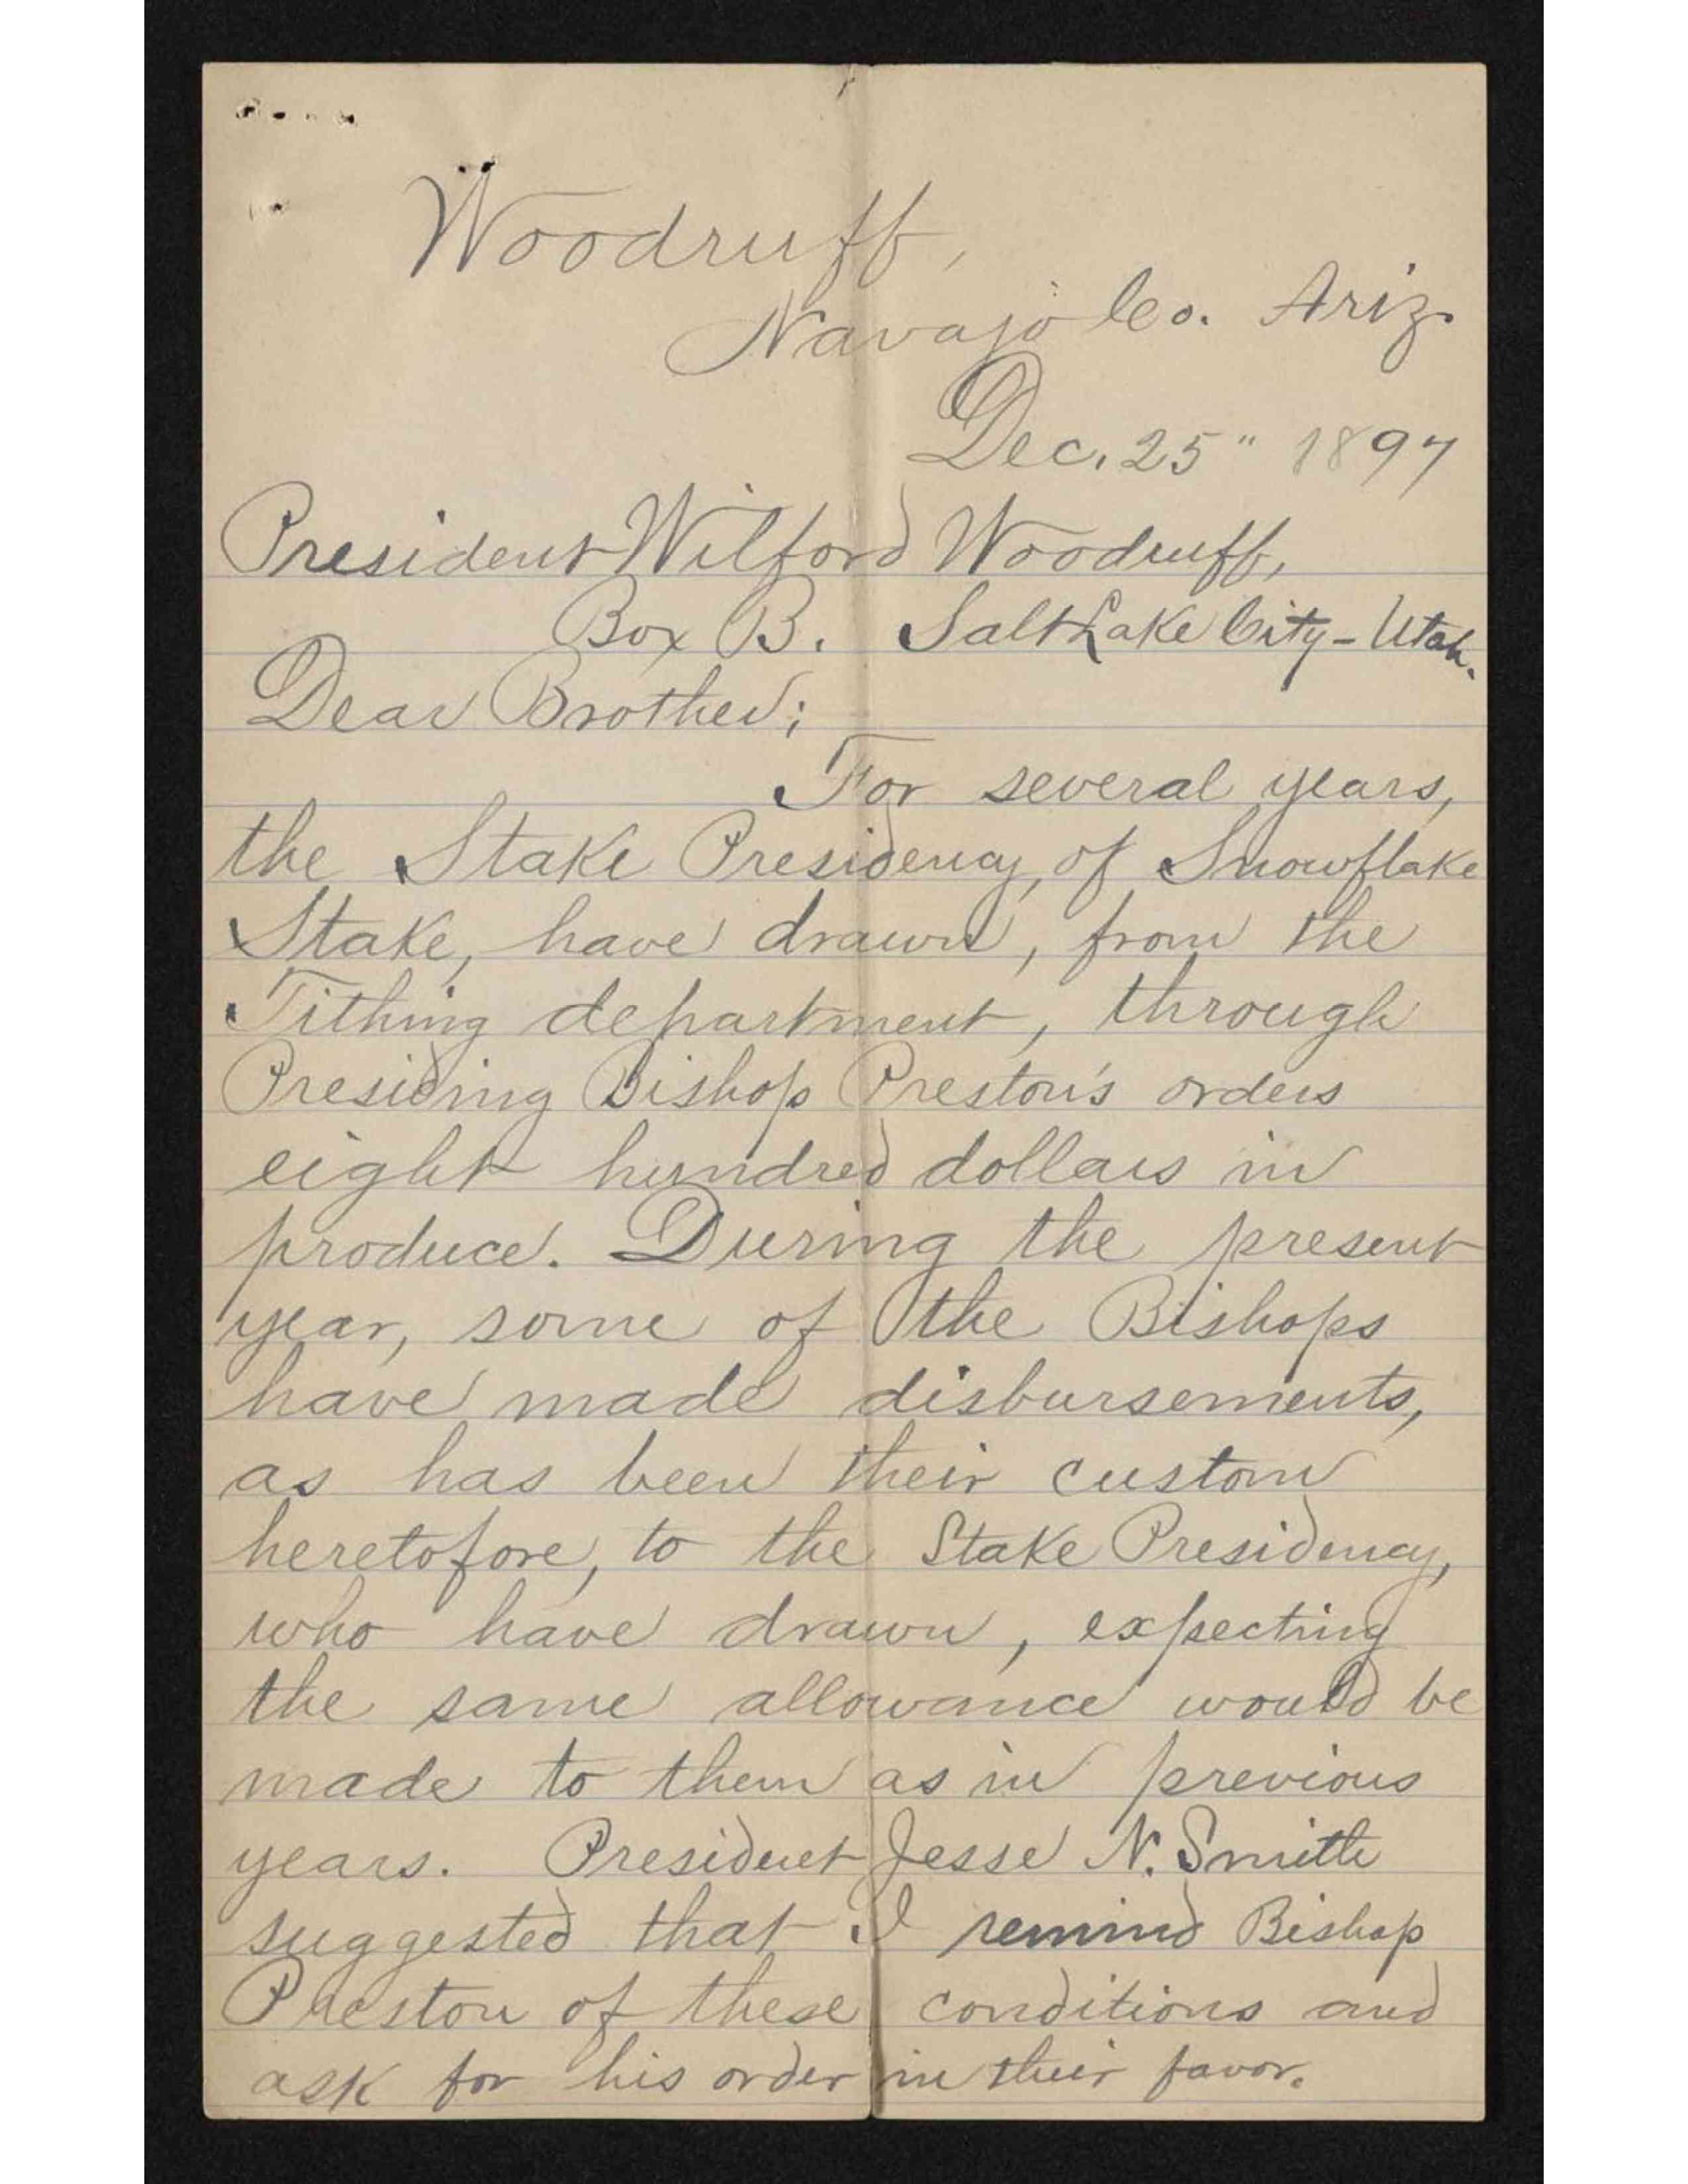 Woodruff,
Navajo Co. Ariz.
Dec. 25" 1897
President Wilford Woodruff,
Box B. Salt Lake City - Utah.
Dear Brother;
For several years,
the Stake Presidency, of Snowflake
Stake, have drawn, from the
Tithing department, through
Presiding Bishop Preston's orders
eight hundred dollars in
produce. During the present
year, some of the Bishops
have made disbursements,
as has been their custom
heretofore, to the Stake Presidency,
who have drawn, expecting
the same allowance would be
made to them as in previous
years. President Jesse N. Smith
suggested that I remind Bishop
Preston of these conditions and
ask for his order in their favor.